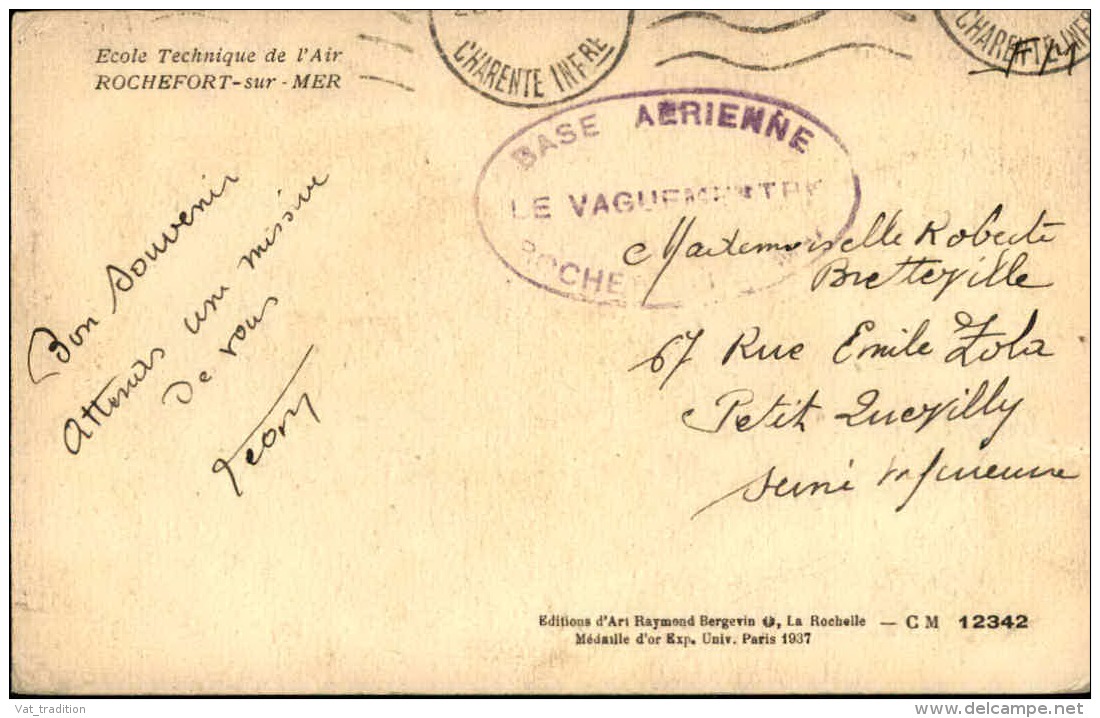 Ecole Technique de l'Air
ROCHEFORT-sur-MER
CHARENTE INFRE
CHARENTE INFRE
BASE AERIENNE
LE VAGUEMESTRE
Bon Souvenir
Attends une missive
De vous
Mademoiselle Roberte
Bretteville
67 Rue Emile Zola
Petit Quevilly
Seine Inferieure
Editions d'Art Raymond Bergevin, La Rochelle — CM 12342
Médaille d'or Exp. Univ. Paris 1937
Vat_tradition
delcampe.net